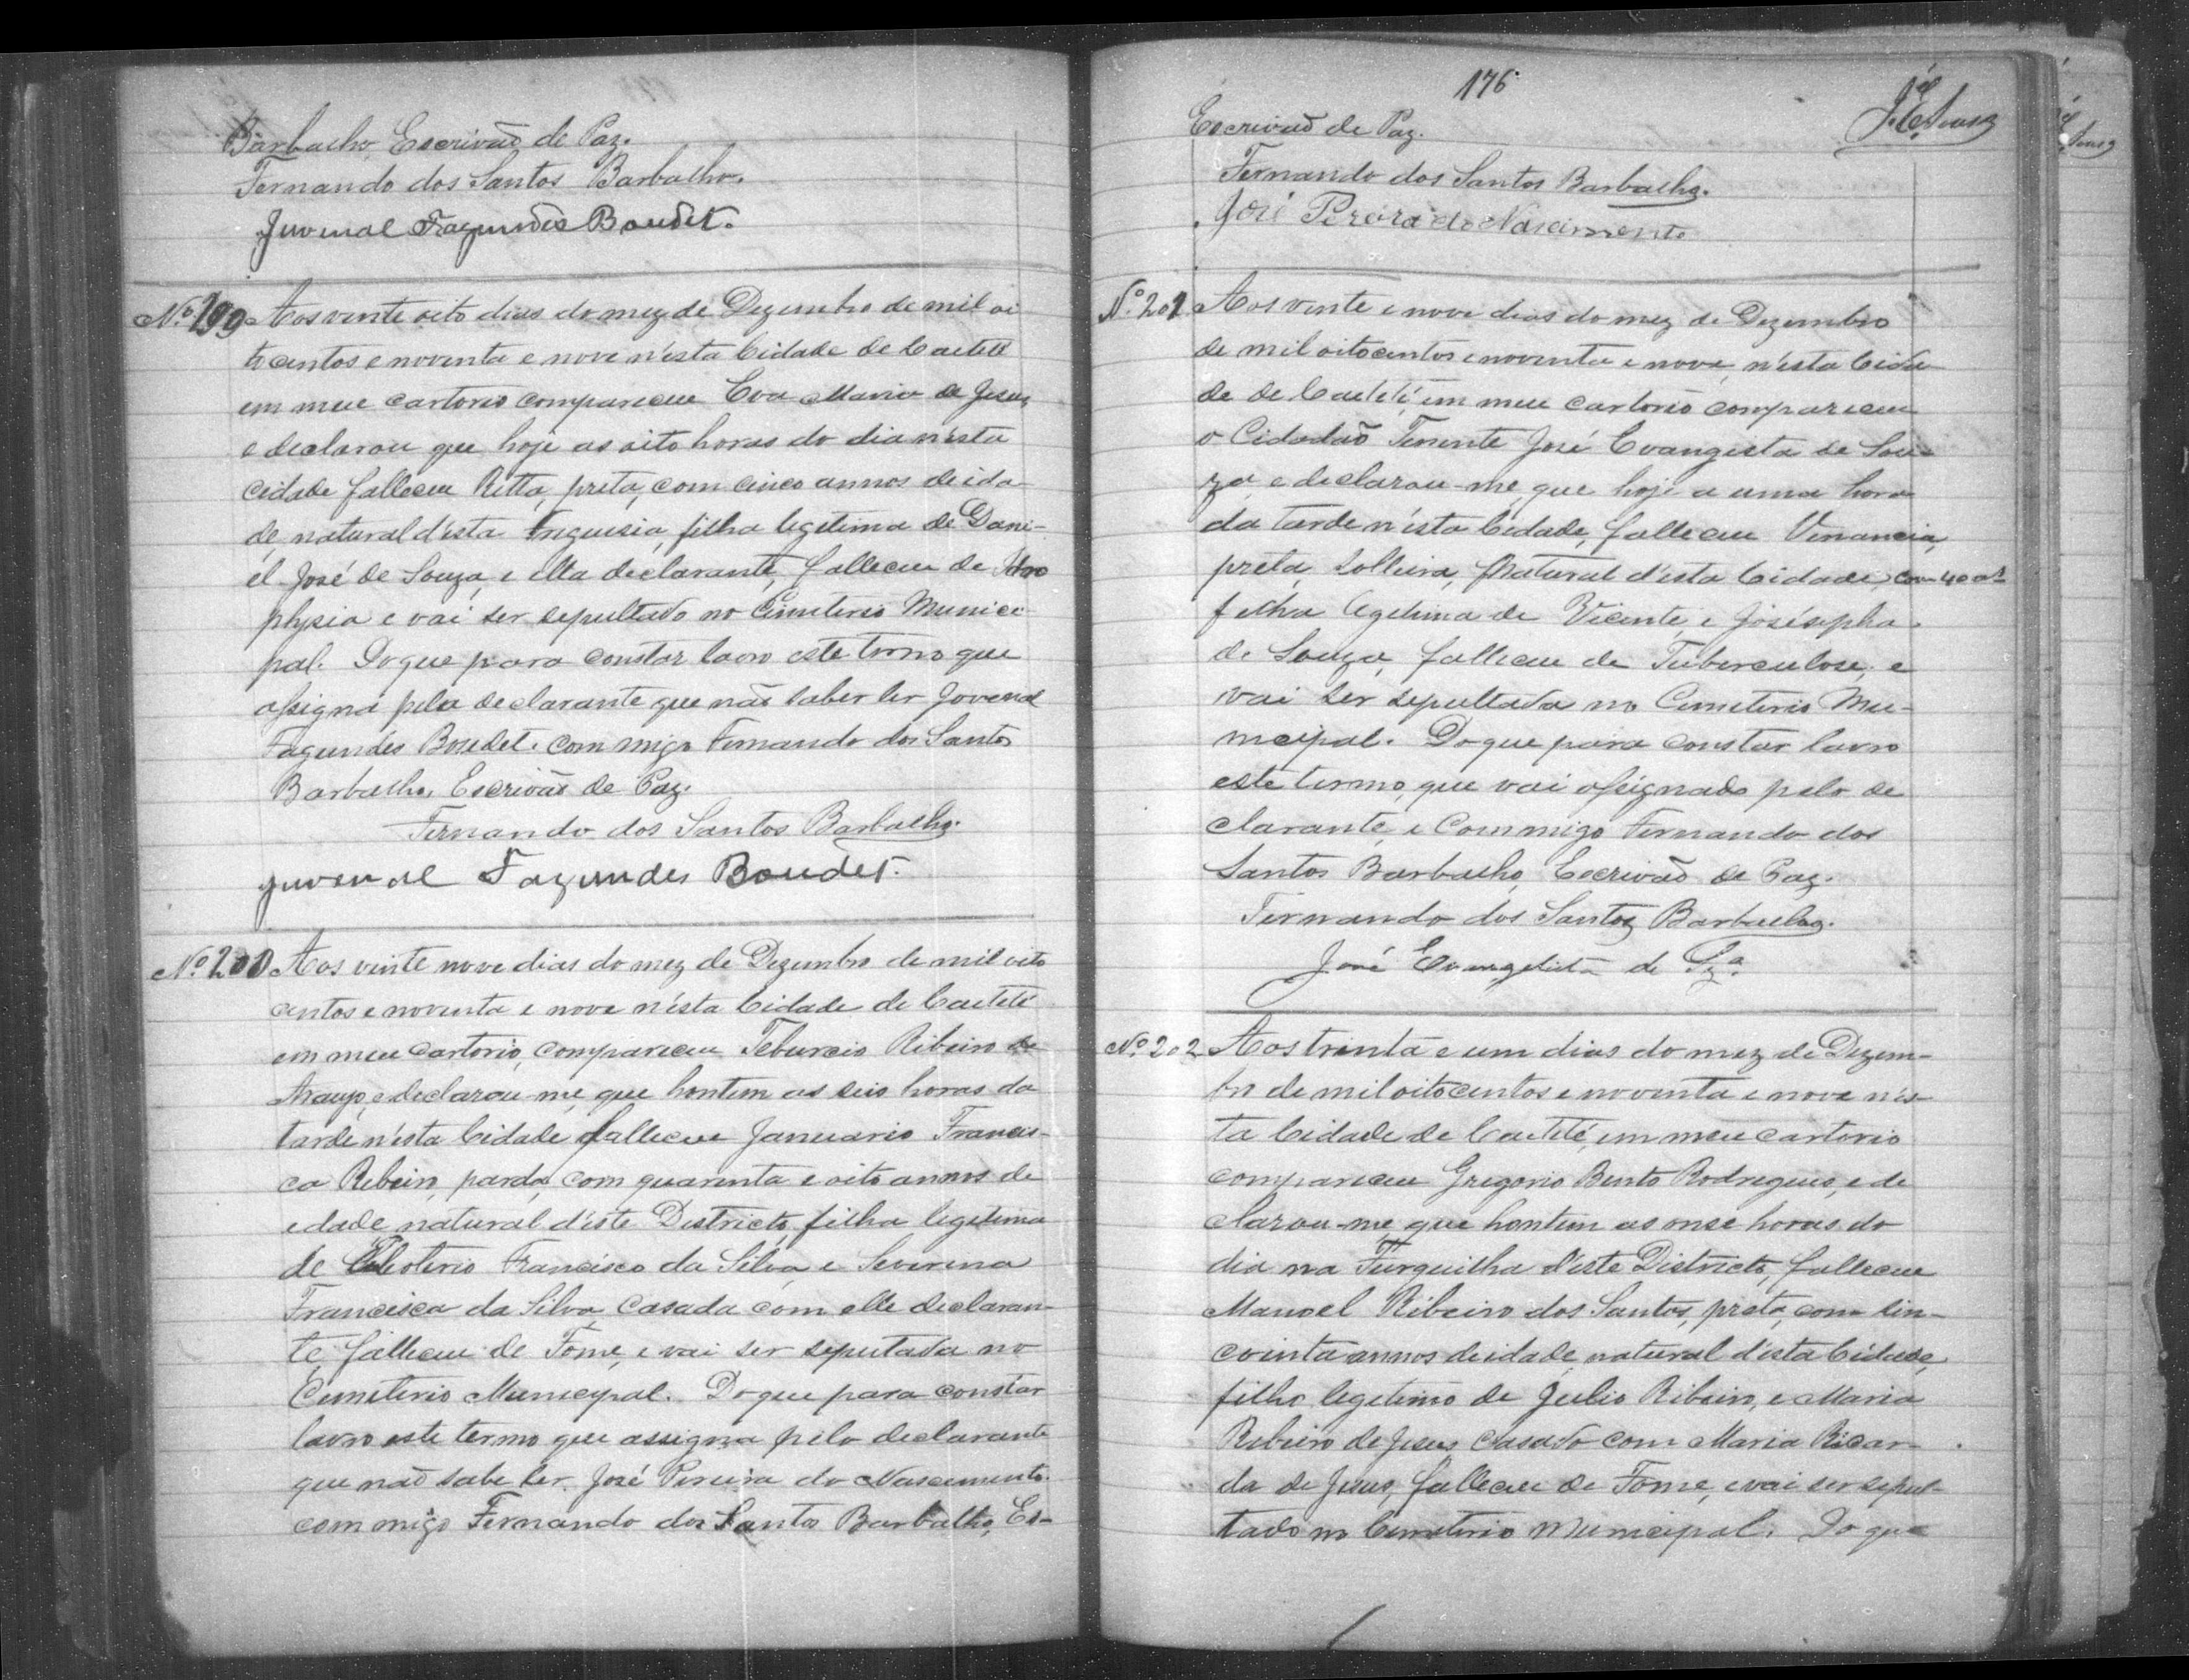 Barbalho, Escrivaõ de Paz.
Fernando dos Santos Barbalho.
Juvenal Fagundes Boudet.
Nº 199 Aos vente oito dias do mez de Dezembro de mil oi
tocentos e noventa e nove n'esta Cidade de Caeteté
em meu cartorio compareceu Eva Maria de Jesus,
e declarou que hoje as oito horas do dia n'esta
cidade falleceu Ritta, preta, com cinco annos de ida-
de, natural d'esta Freguesia, filha legitima de Dani-
el José de Souza, e ella declarante, falleceu de Idro
physia e vai ser sepultado no Cimiterio Munici-
pal. Do que para constar lavro este termo que
assigna pela declarante que não saber ler Jovenal
Fagundes Boudet. com migo Fernando dos Santos
Barbalho, Escrivaõ de Paz.
Fernando dos Santos Barbalho.
Juvenal Fagundes Boudet.
Nº 200 Aos vinte nove dias do mez de Dezembro de mil oito
centos e noventa e nove n'esta Cidade de Caeteté
em meu cartorio, compareceu Teburcio Ribeiro de
Araujo, e declarou-me, que hontem as seis horas da
tarde n'esta Cidade falleceu Januario Francis-
ca Ribeiro, parda, com quarenta e oito annos de
edade natural d'este Districto, filha legitima
de Eleoterio Francisco da Silva, e Severina
Francisca da Silva, Casada com elle declaran-
te, falleceu de Fome, e vai ser seputada no
Cimiterio Municipal. Do que para constar
lavro este termo que assigna pelo declarante
que naõ sabe ler. José Pereira do Nascimento.
com migo Fernando dos Santos Barbalho, Es-
176
J. E. Sousa
Escrivaõ de Paz.
Fernando dos Santos Barbalho.
José Pereira do Nascimento
Nº 201 Aos vinte e nove dias do mez de Dezembro
de mil oitocentos e noventa e nove, n'esta Cida-
de de Caeteté, em meu cartorio compareceu
o Cidadaõ Tenente José Evangista de Sou-
za, e declarou-me, que hoje a uma hora
da tarde n'esta Cidade, falleceu Venancia,
preta, solteira, natural d'esta Cidade, com 40 as
filha legitima de Vicente, e Josésepha
de Souza, falleceu de Tuberculose, e
vai ser sepultada no Cimiterio Mu-
nicipal. Do que para constar lavro
este termo, que vai assignado pelo de
clarante, e Commigo Fernando dos
Santos Barbalho, Escrivaõ de Paz.
Fernando dos Santos Barbalho.
José Evangelista de Sza.
Nº 202 Aos trinta e um dias do mez de Dezem-
bro de mil oitocentos e noventa e nove n'es-
ta Cidade de Caeteté, em meu cartorio
compareceu Gregorio Bento Rodrigues, e de
clarou-me, que hontem as onse horas do
dia na Furquilha d'este Districto, falleceu
Manoel Ribeiro dos Santos, preto, com sin-
cointa annos de idade, natural d'esta Cidade,
filho legitimo de Julio Ribeiro, e Maria
Ribeiro de Jesus, casado com Maria Ricar-
da de Jesus, falleceu de Fome, e vai ser sepul-
tado no Cimiterio Municipal. Do que